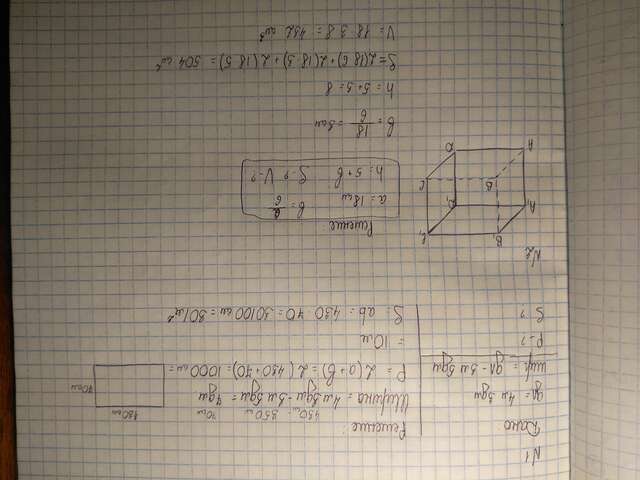 N1
Дано:
дл = 4м 3дм
шир = дл - 3м 5дм
P - ?
S - ?
Решение:
430см 350см 70см
Ширина = 4м 3дм - 3м 5дм = 7дм
P = 2(a+b) = 2(430+70) = 1000 см =
= 10м
S = ab = 430 · 70 = 30100 см = 301 м²
430 см
70см
N2
B₁
A₁
D₁
B
C
D
A
Решение:
a = 18см b = 6
h = 5+b S-? V-?
b = 18/6 = 3см
h = 5+3=8
S = 2(18·3)+2(18·5) = 504 см²
V = 18·3·8 = 432 см³